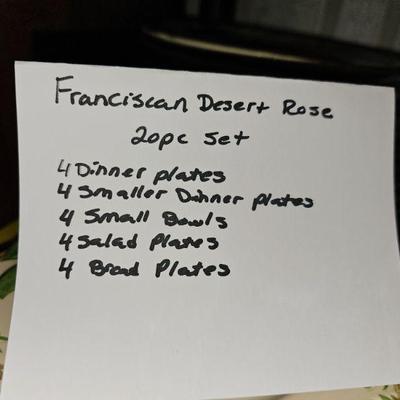 Franciscan Desert Rose
20pc Set
4 Dinner plates
4 Smaller Dinner plates
4 Small Bowls
4 Salad Plates
4 Bread Plates